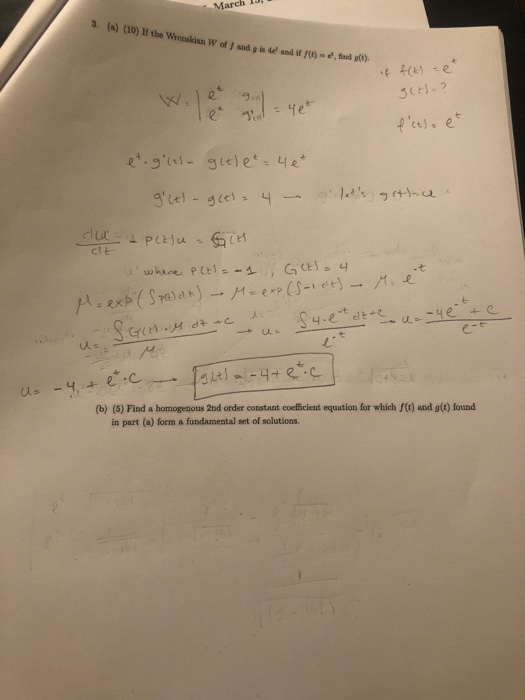 March
3. (a) (10) If the Wronskian W of f and g is 4eᵗ and if f(t) = eᵗ, find g(t).
if f(t) = eᵗ
g(t) = ?
f'(t) = eᵗ
W = | eᵗ g(t) | = 4eᵗ
| eᵗ g'(t) |
eᵗ · g'(t) - g(t) eᵗ = 4eᵗ
g'(t) - g(t) = 4 → let's g(t) = u
du/dt + P(t)u = G(t)
where P(t) = -1, G(t) = 4
M = exp(∫P(t)dt) → M = exp(∫-1 dt) → M = e⁻ᵗ
u = (∫G(t)·M dt + c) / M → u = (∫4·e⁻ᵗ dt + c) / e⁻ᵗ → u = (-4e⁻ᵗ + c) / e⁻ᵗ
u = -4 + eᵗ·c → g(t) = -4 + eᵗ·c
(b) (5) Find a homogenous 2nd order constant coefficient equation for which f(t) and g(t) found
in part (a) form a fundamental set of solutions.